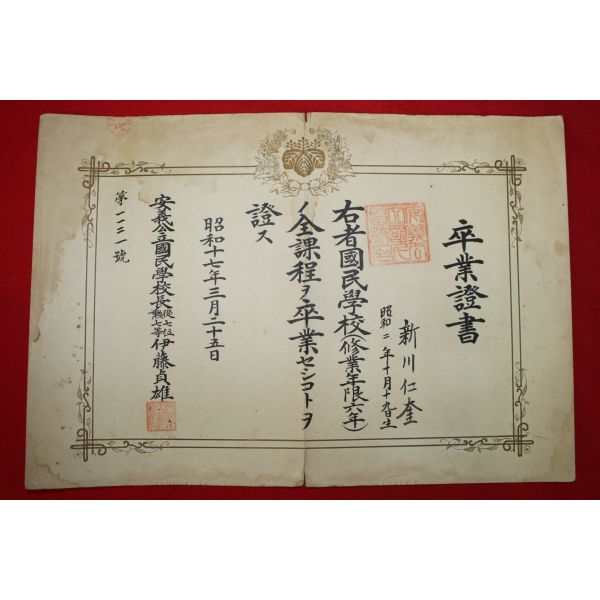 卒業證書
新川仁奎
昭和二年十月十九日生
右者國民學校(修業年限六年)
ノ全課程ヲ卒業セシコトヲ
證ス
昭和十七年三月二十五日
安義公立國民學校長從七位勲七等伊藤貞雄
第一二一號